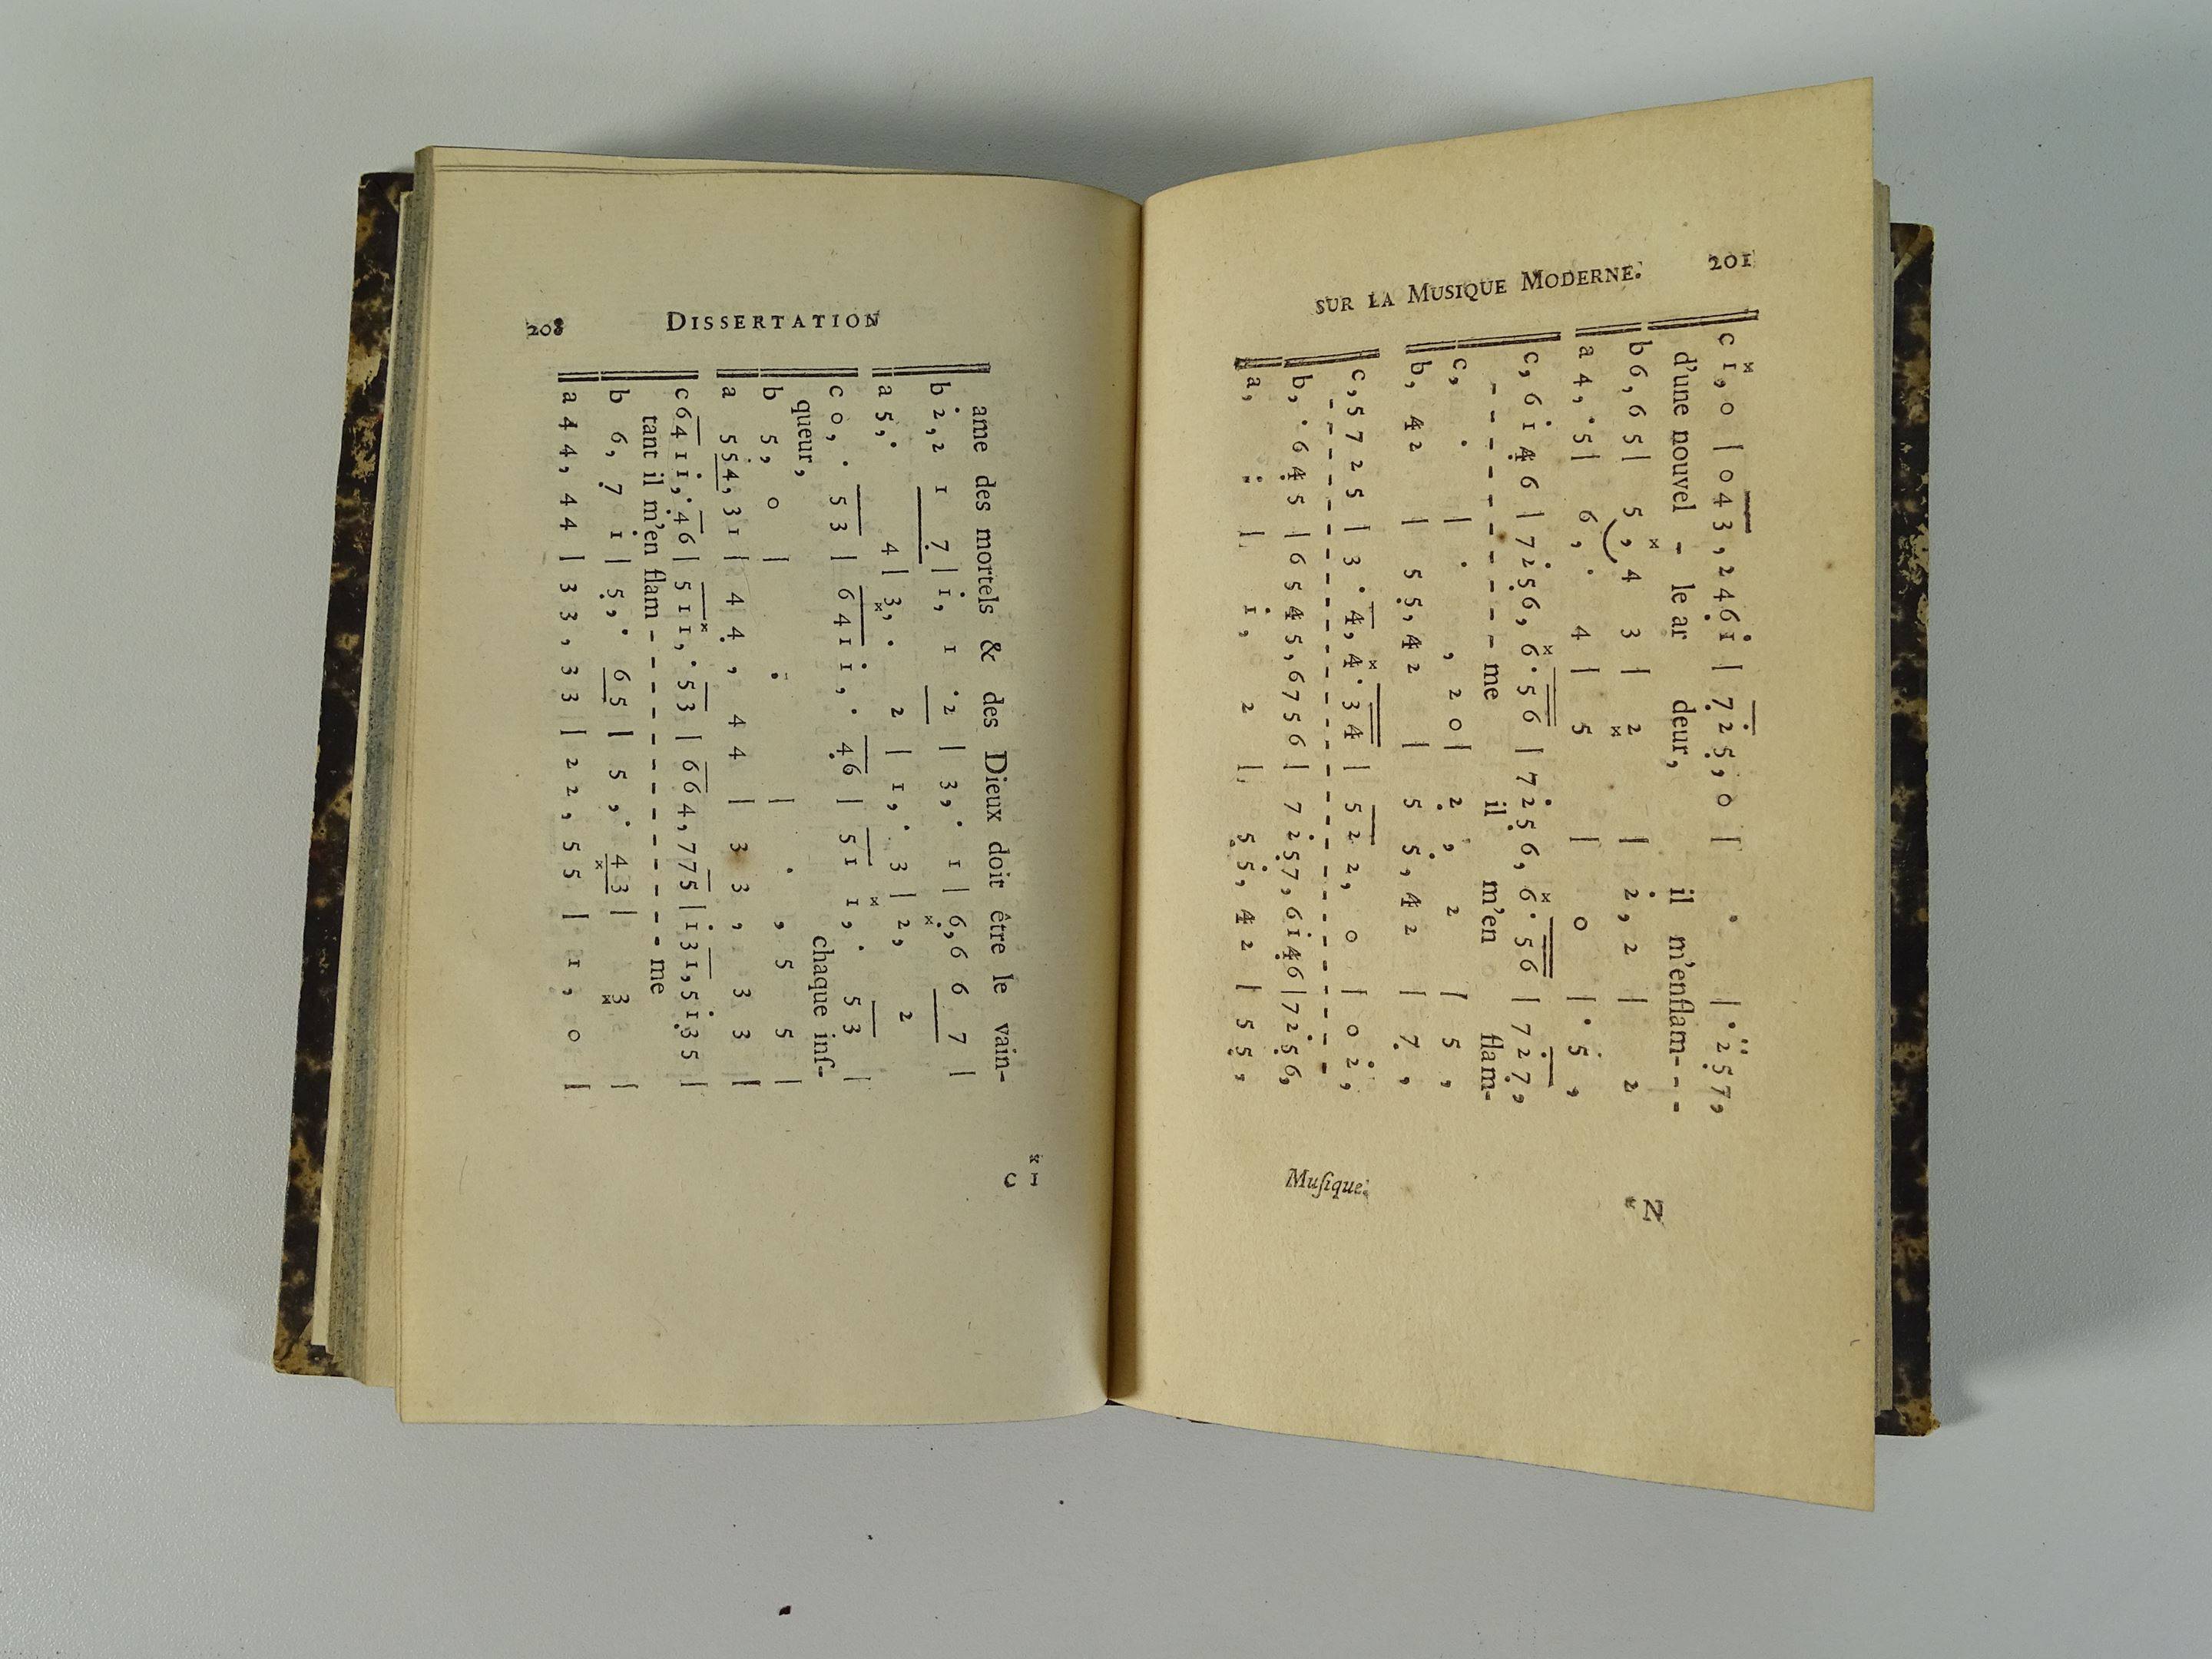 208 DISSERTATION
ame des mortels & des Dieux doit être le vain-
b 2,2 1 7 | 1, 1 · 2 | 3, · 1 | 6,6 6 7 |
a 5, · 4 | 3, · 2 | 1, · 3 | 2, 2
c 0, · 5 3 | 6 4 1 1, · 4 6 | 5 1 1, · 5 3 |
queur, chaque inſ-
b 5, 0 | · | · , 5 5 |
a 5 5 4, 3 1 | 4 4, 4 4 | 3 3, 3 3 |
c 6 4 1 1, · 4 6 | 5 1 1, · 5 3 | 6 6 4, 7 7 5 | 1 3 1, 5 1 3 5 |
tant il m'en flam - - - - - - - - - - - - me
b 6, 7 1 | 5, · 6 5 | 5, · 4 3 | 3 |
a 4 4, 4 4 | 3 3, 3 3 | 2 2, 5 5 | 1, 0 |
x 1
c
SUR LA MUSIQUE MODERNE. 201
c 1, 0 | 0 4 3, 2 4 6 1 | 7 2 5, 0 | · | · 2 5 7,
d'une nouvel - le ar deur, il m'enflam- - -
b 6, 6 5 | 5, 4 3 | 2 | 2, 2 | 2
a 4, · 5 | 6, · 4 | 5 | 0 | · 5,
c, 6 1 4 6 | 7 2 5 6, 6 · 5 6 | 7 2 5 6, 6 · 5 6 | 7 2 7,
- - - - - - - - - - me il m'en flam-
c, · | · , 2 0 | 2, 2 | 5,
b, 4 2 | 5 5, 4 2 | 5 5, 4 2 | 7,
c, 5 7 2 5 | 3 · 4, 4 · 3 4 | 5 2 2, 0 | 0 2,
- - - - - - - - - - - - - - - - - - - - - - - - - -
b, · 6 4 5 | 6 5 4 5, 6 7 5 6 | 7 2 5 7, 6 1 4 6 | 7 2 5 6,
a, · | 1, 2 | 5 5, 4 2 | 5 5,
Muſique. N